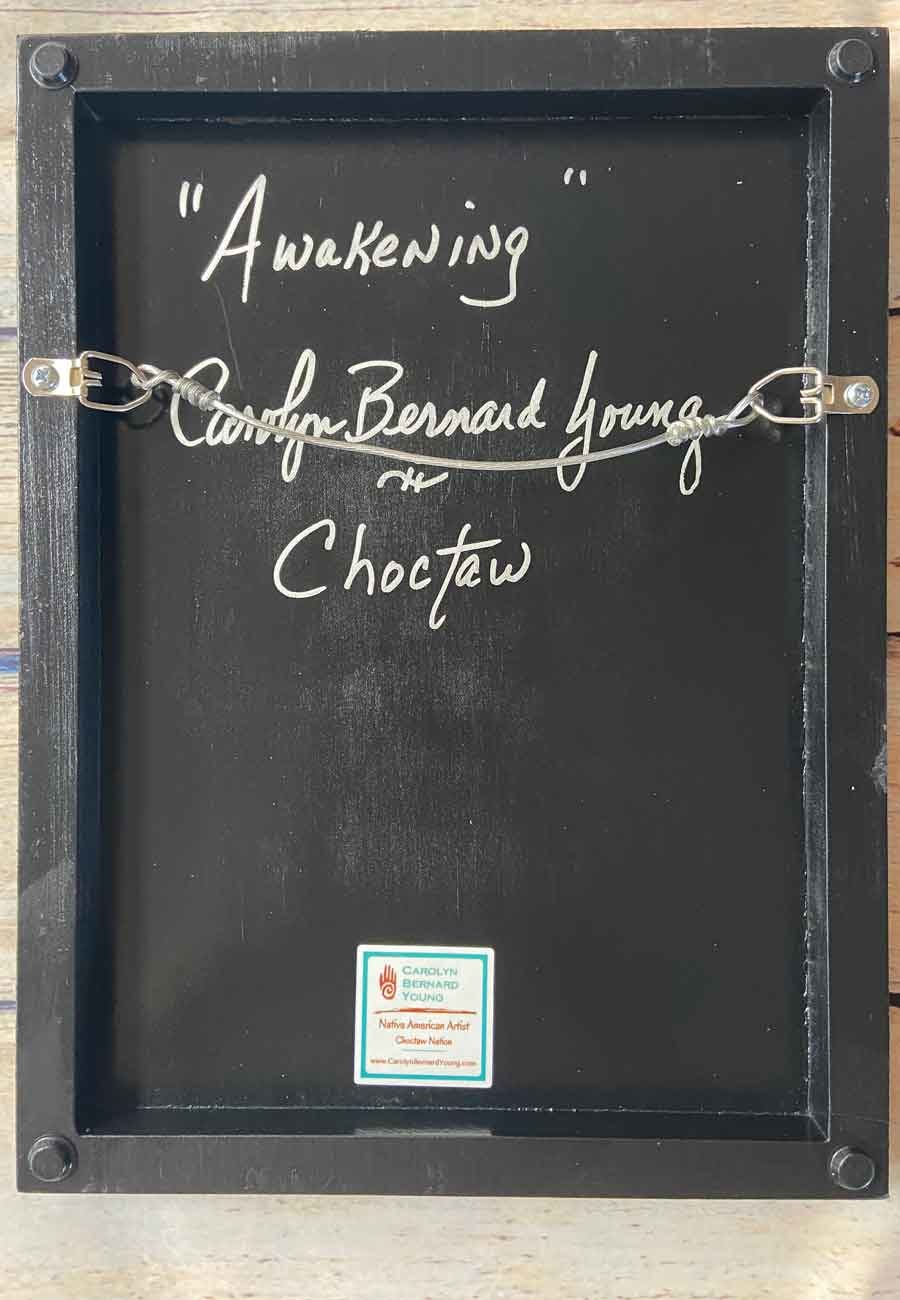 "Awakening"
Carolyn Bernard Young
Choctaw
CAROLYN
BERNARD
YOUNG
Native American Artist
Choctaw Nation
www.CarolynBernardYoung.com